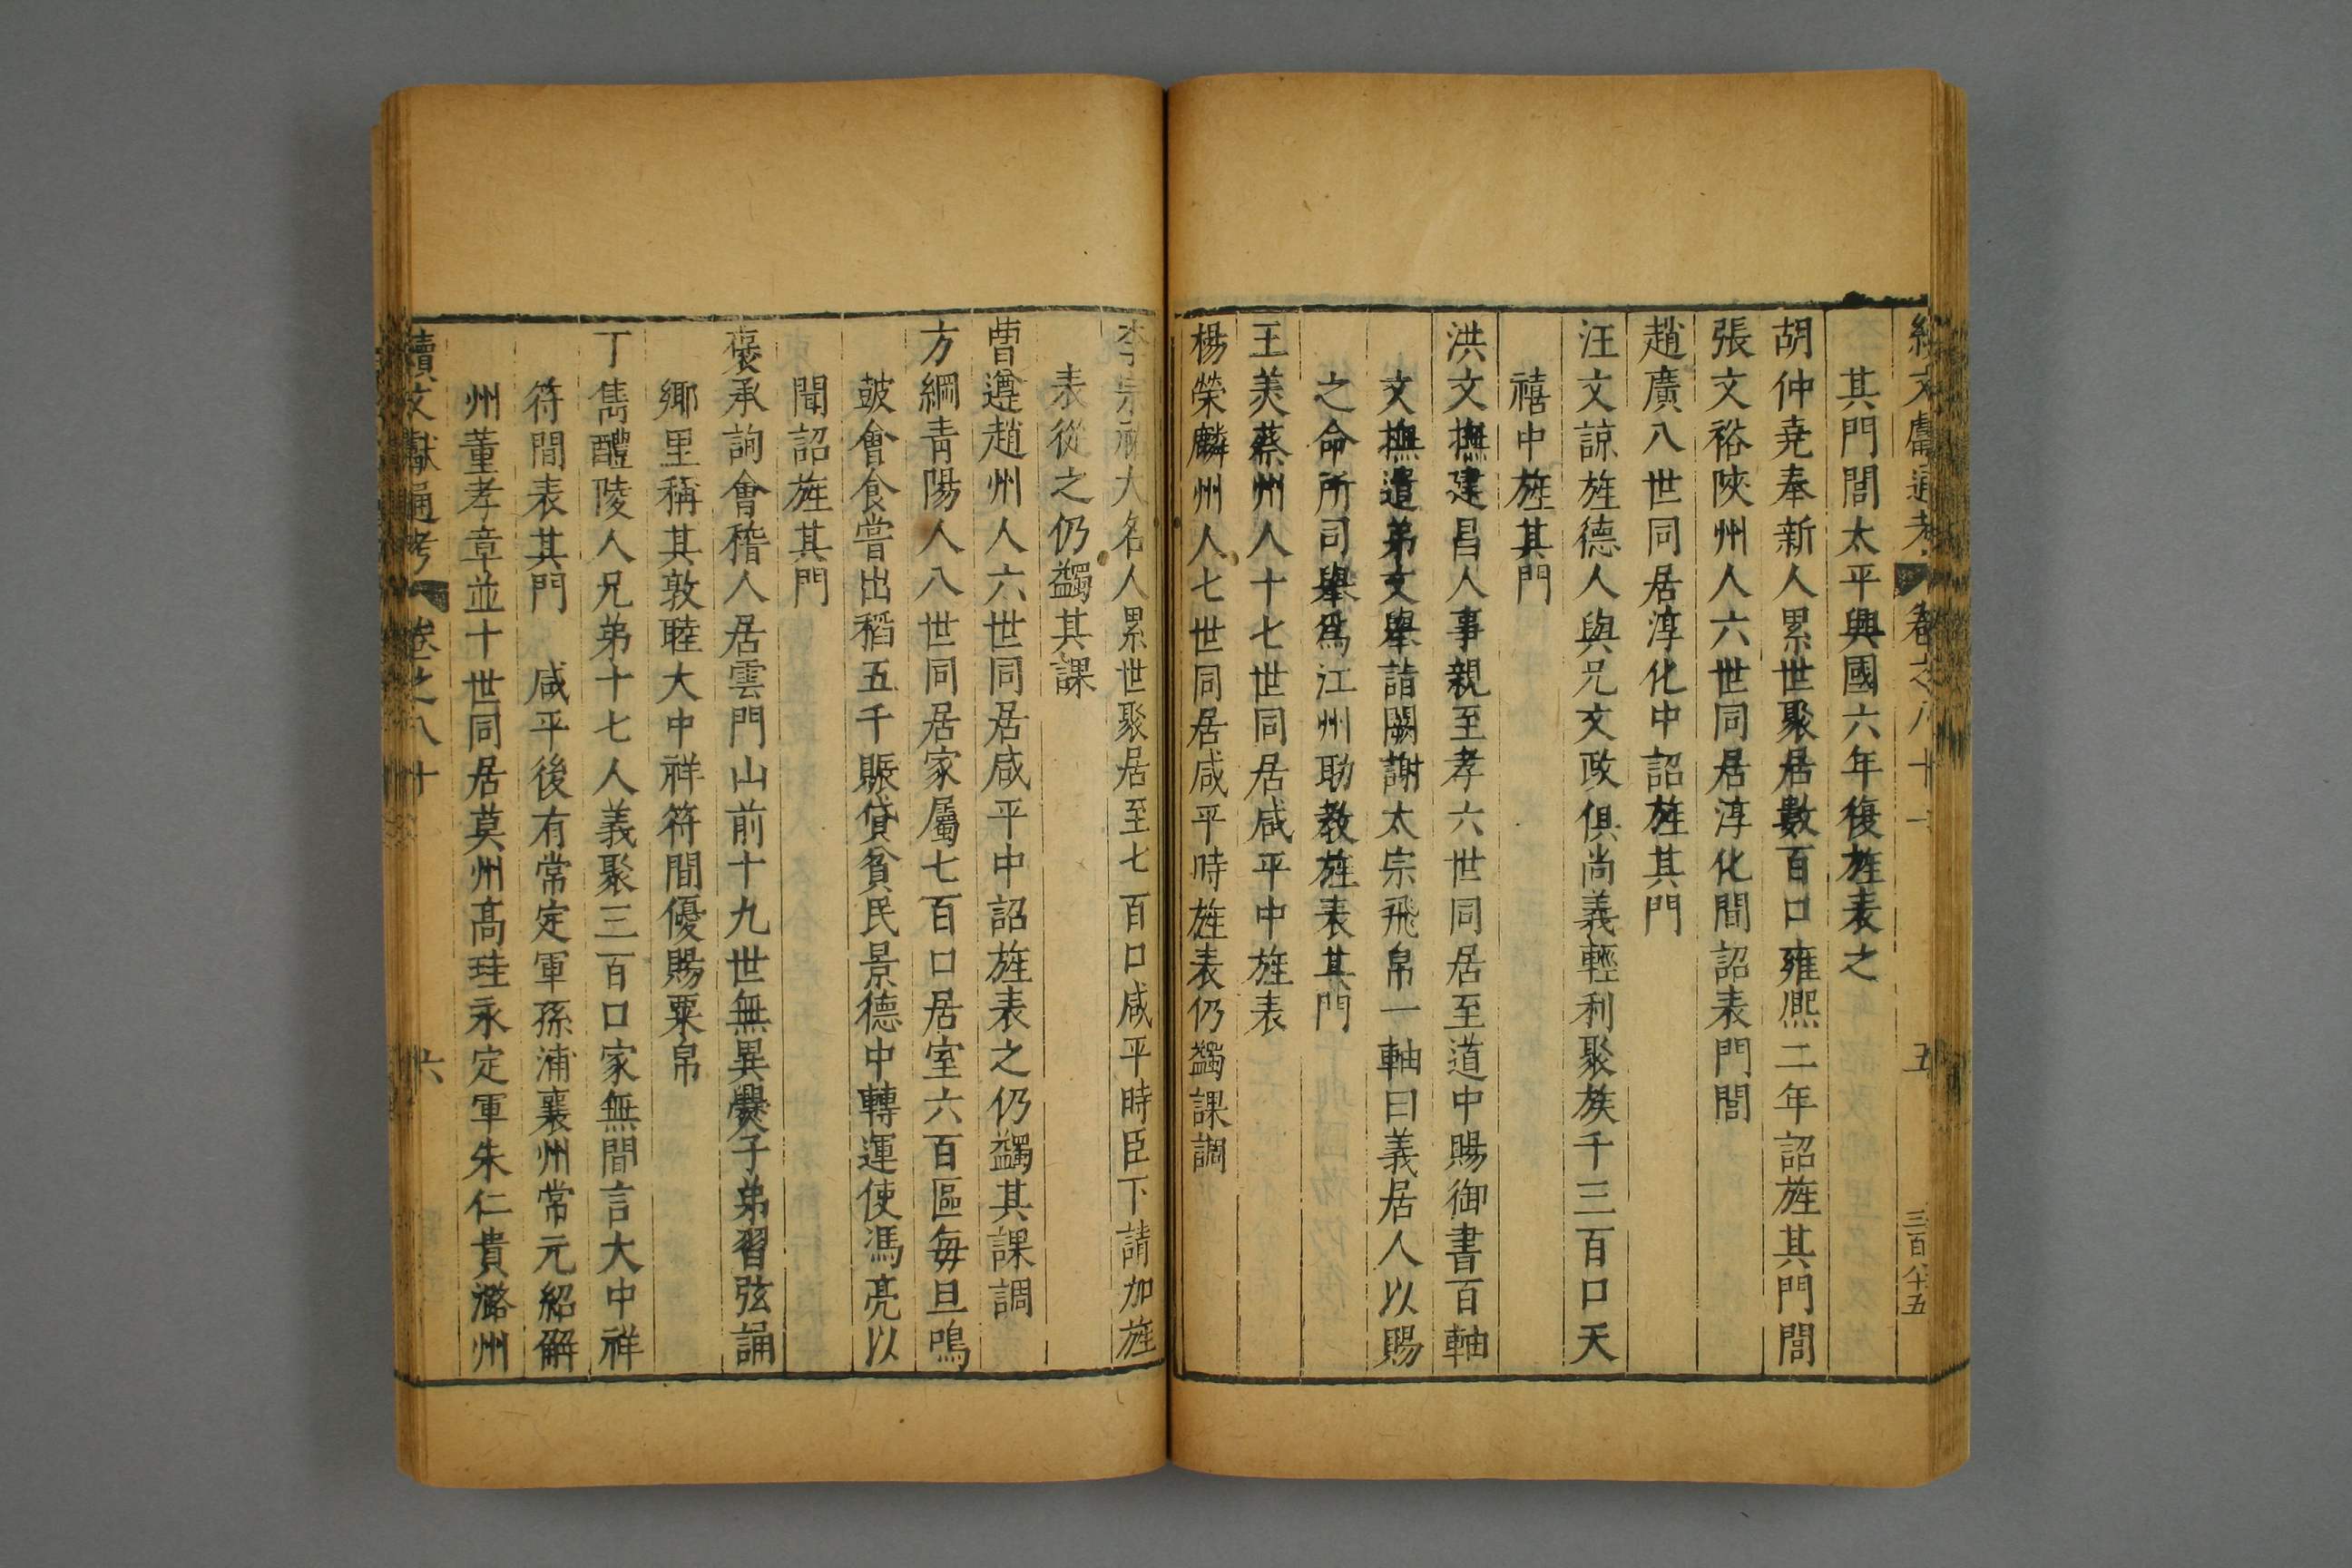 續文獻通考 卷之八十 五 三百八十五
其門閭太平興國六年復旌表之
胡仲堯奉新人累世聚居數百口雍熈二年詔旌其門閭
張文裕陝州人六世同居淳化間詔表門閭
趙廣八世同居淳化中詔旌其門
汪文諒旌德人與兄文政俱尚義輕利聚族千三百口天
禧中旌其門
洪文撫建昌人事親至孝六世同居至道中賜御書百軸
文撫遣弟文舉詣闕謝太宗飛帛一軸曰義居人以賜
之命所司舉爲江州助教旌表其門
王美蔡州人十七世同居咸平中旌表
楊榮麟州人七世同居咸平時旌表仍蠲課調
李宗祐大名人累世聚居至七百口咸平時臣下請加旌
表從之仍蠲其課
曹遵趙州人六世同居咸平中詔旌表之仍蠲其課調
方綱青陽人八世同居家屬七百口居室六百區每旦鳴
鼓會食嘗出稻五千賑貸貧民景德中轉運使馮亮以
聞詔旌其門
裘承詢會稽人居雲門山前十九世無異爨子弟習弦誦
鄉里稱其敦睦大中祥符間優賜粟帛
丁雋醴陵人兄弟十七人義聚三百口家無間言大中祥
符間表其門 咸平後有常定軍孫浦襄州常元紹解
州董孝章並十世同居莫州高珪永定軍朱仁貴潞州
續文獻通考 卷之八十 六